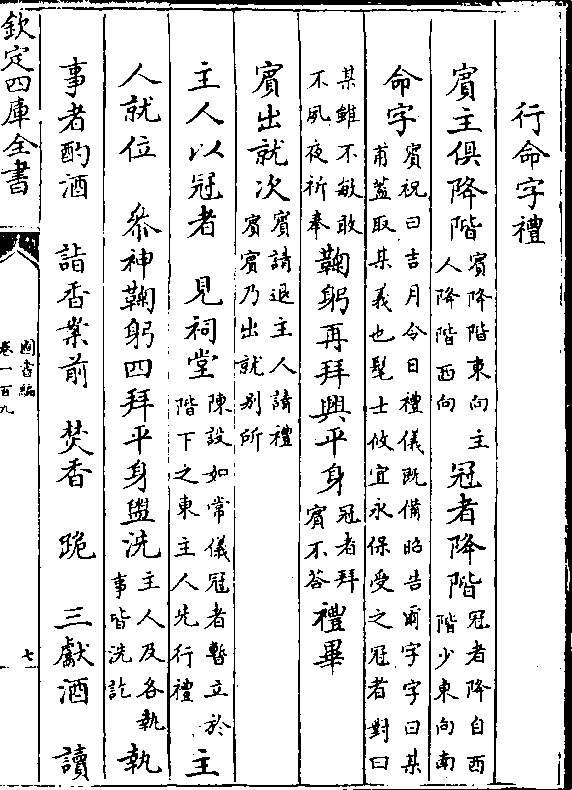 行命字禮
賓主俱降階賓降階東向主人降階西向冠者降階冠者降自西階少東向南
命字賓祝曰吉月令日禮儀既備昭告爾字字曰某甫蓋取某義也髦士攸宜永保受之冠者對曰
某雖不敏敢不夙夜祈奉鞠躬再拜興平身冠者拜賓不答禮畢
賓出就次賓請退主人請禮賓賓乃出就別所
主人以冠者 見祠堂陳設如常儀冠者暫立於階下之東主人先行禮主
人就位 叅神鞠躬四拜平身盥洗主人及各執事皆洗訖執
事者酌酒 詣香案前 焚香 跪 三獻酒 讀
欽定四庫全書
圖書編
卷一百九
七